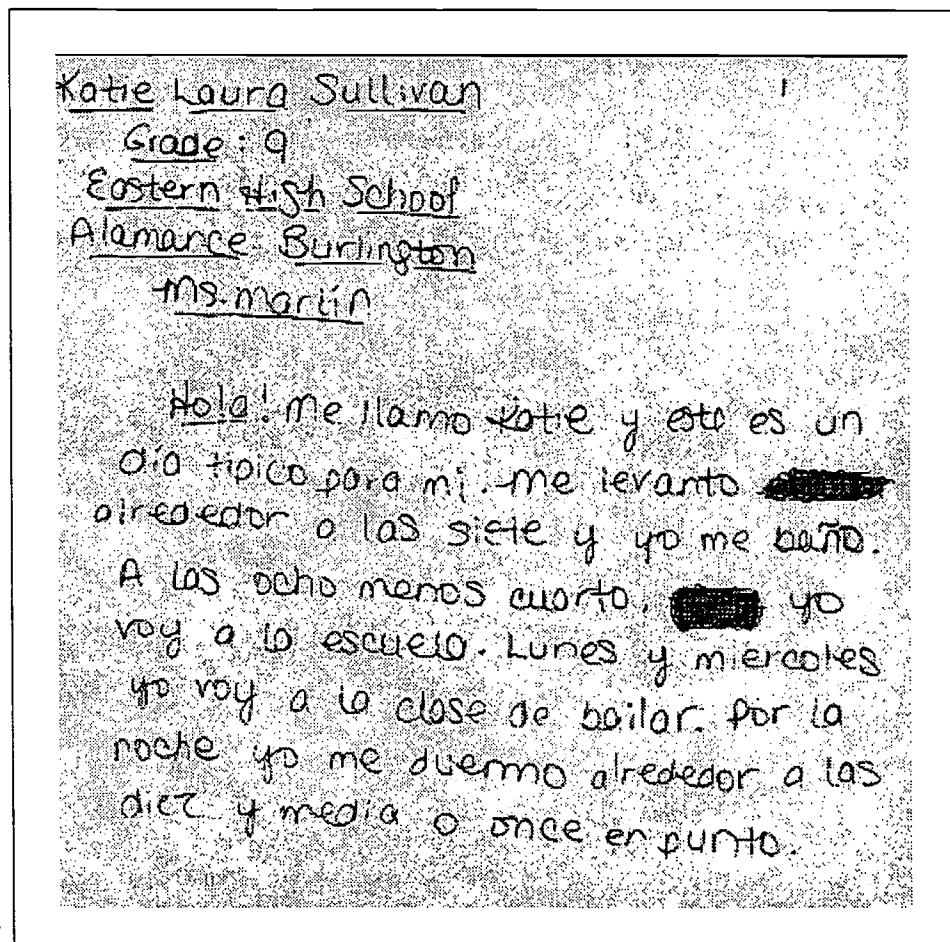 Katie Laura Sullivan 1
Grade: 9
Eastern High School
Alamance Burlington
Ms. Martin
Hola! Me llamo Katie y este es un
día tipico para mi. Me levanto
alrededor a las siete y yo me baño.
A las ocho menos cuarto, yo
voy a la escuela. Lunes y miercoles
yo voy a la clase de bailar. Por la
noche yo me duermo alrededor a las
diez y media o once en punto.